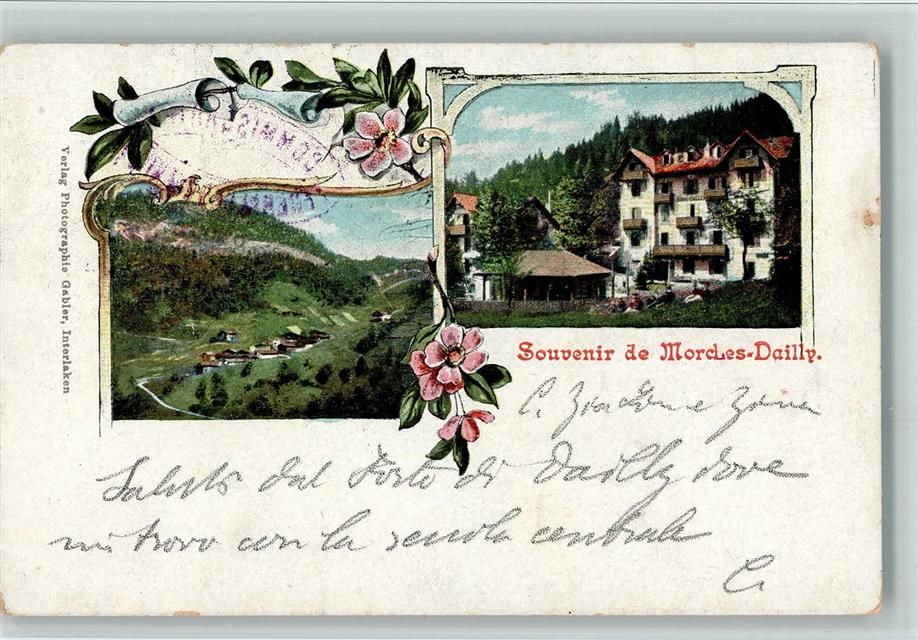 Verlag Photographie Gabler, Interlaken
Souvenir de Morcles-Dailly.
C.
Saluto dal Forte di Dailly dove
mi trovo con la scuola centrale
C